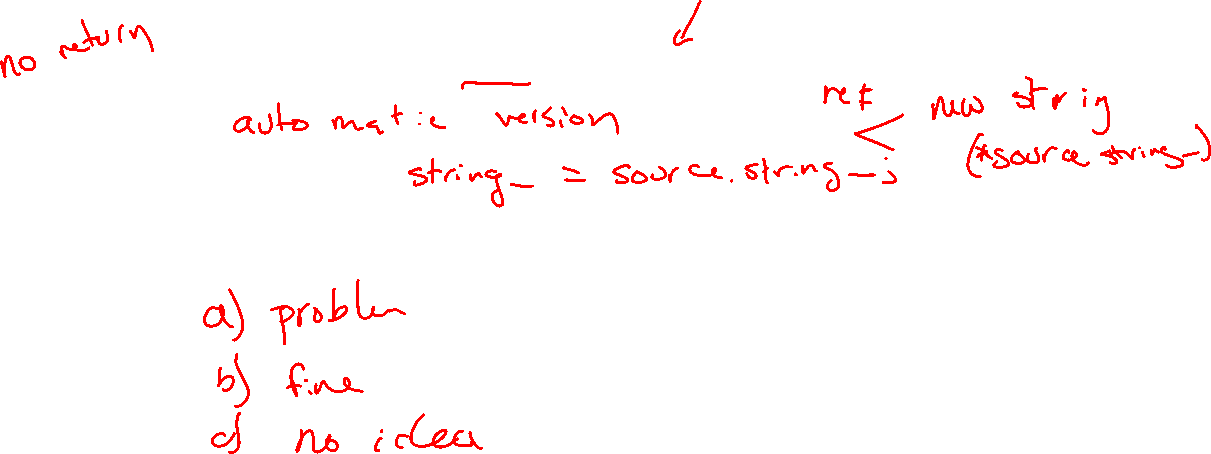 no return
automatic version
string_ = source.string_;
new strig
(*source string_)
a) problem
b) fine
c) no idea